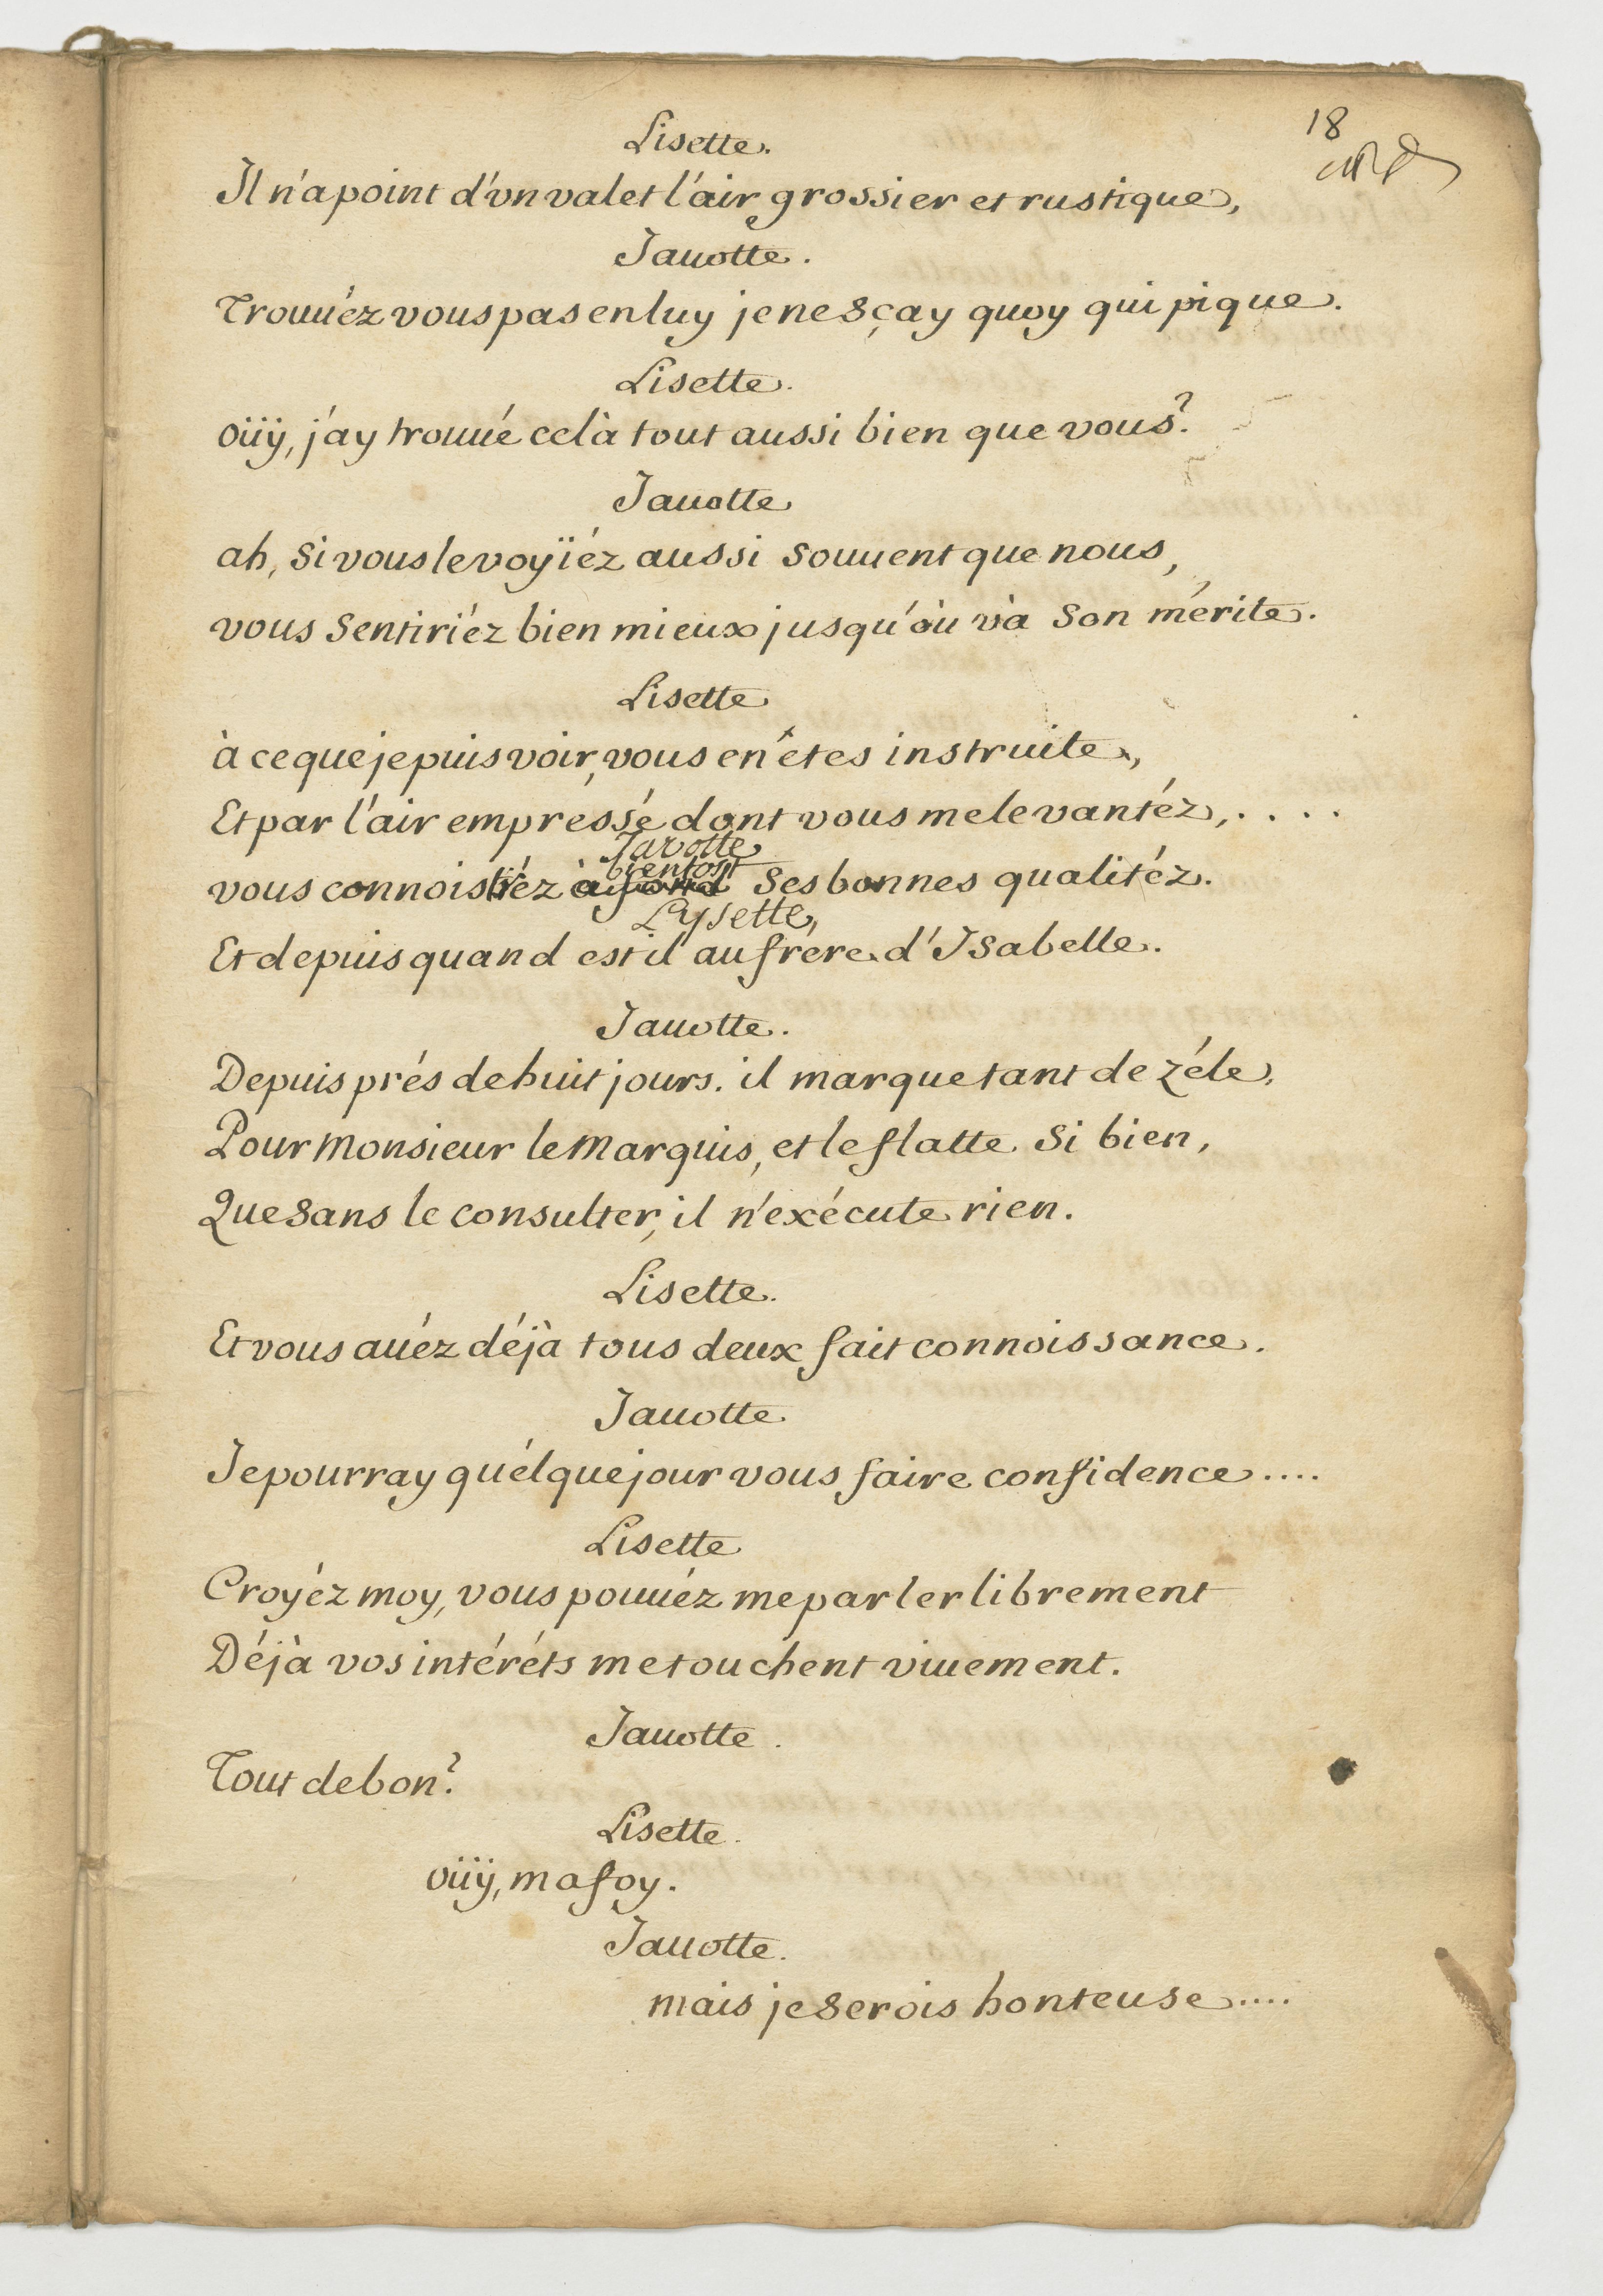 18
Lisette.
Il n'a point d'vn valet l'air grossier et rustique,
Jauotte.
Trouuéz vous pas en luy je ne sçay quoy qui pique.
Lisette.
oüÿ, j'ay trouué celà tout aussi bien que vous?
Jauotte
ah, si vous le voyïéz aussi souuent que nous,
vous sentiriéz bien mieux jusqu'où và son mérite.
Lisette
à ce que je puis voir, vous en étes instruite,
Et par l'air empressé dont vous me le vantéz, . . . .
Javotte
bientost
vous connoistréz à fond ses bonnes qualitéz.
Lysette,
Et depuis quand est il au frére d'Isabelle.
Jauotte.
Depuis prés de huit jours. il marque tant de zéle,
Pour Monsieur le Marquis, et le flatte si bien,
Que sans le consulter, il n'exécute rien.
Lisette.
Et vous auéz déjà tous deux fait connoissance.
Jauotte
Je pourray quélque jour vous faire confidence ....
Lisette
Croyéz moy, vous pouuéz me parler librement
Déjà vos intéréts me touchent viuement.
Jauotte.
Tout de bon?
Lisette.
oüÿ, ma foy.
Jauotte.
mais je serois honteuse ....